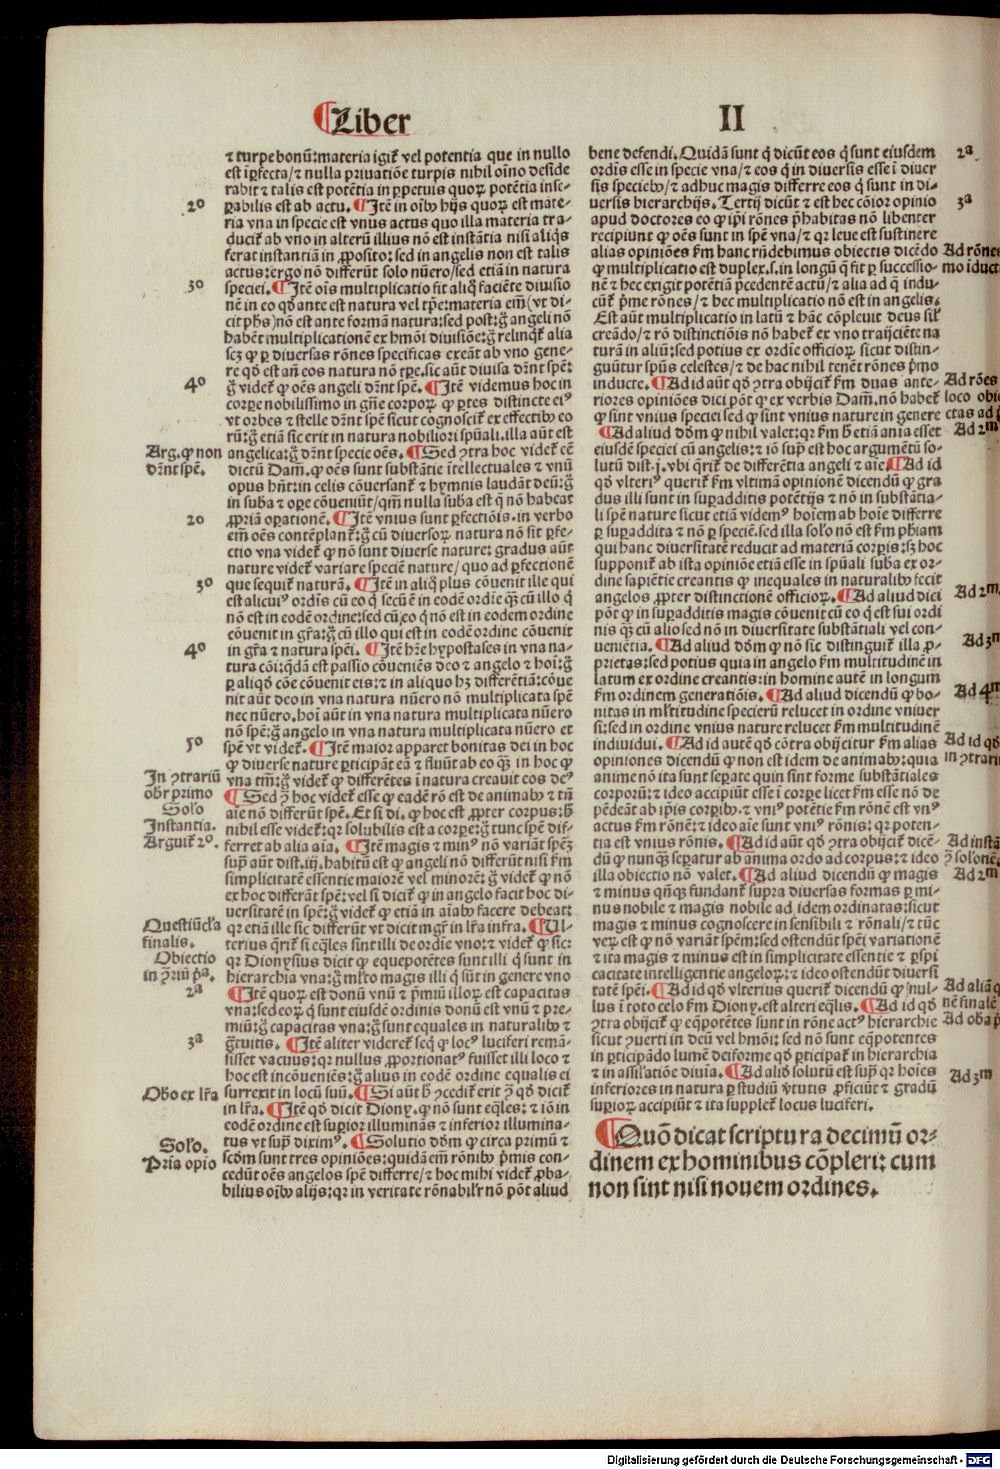 ¶Liber
II
⁊ turpe bonū: materia igit̄ vel potentia que in nullo
est īp̄fecta/⁊ nulla priuatiōe turpis nihil oīno deside
rabit ⁊ talis est potētia in ꝑpetuis quoꝝ potētia inse-
ꝑabilis est ab actu. ¶Itē in oībꝰ hijs quoꝝ est mate-
ria vna in specie est vnus actus quo illa materia tra-
ducit̄ ab vno in alterū illius nō est instātia nisi aliq̄s
ferat instantiam in ꝓposito: sed in angelis non est talis
actus: ergo nō differūt solo nūero/sed etiā in natura
speciei. ¶Itē oīs multiplicatio fit aliq̄ faciēte diuisio
nē in eo qd̄ ante est natura vel tp̄e: materia em̄ (vt di-
cit ph̄s) nō est ante formā natura: sed post: g̊ angeli nō
habēt multiplicationē ex hmōi diuisiōe: g̊ relinq̄t̄ alia
scꝫ ꝙ ꝑ diuersas rōnes specificas exeāt ab vno gene-
re qd̄ est añ eos natura nō tꝑe. sic aūt diuisa dr̄nt spē:
g̊ videt̄ ꝙ oēs angeli dr̄nt spē. ¶Itē videmus hoc in
corꝑe nobilissimo in gn̄e corpoꝝ ꝙ ꝑtes distincte eiꝰ
vt orbes ⁊ stelle dr̄nt spē sicut cognoscit̄ ex effectibꝰ eo
rū: g̊ etiā sic erit in natura nobiliori spūali. illa aūt est
angelica: g̊ dr̄nt specie oēs. ¶Sed ɔtra hoc videt̄ eē
dictū Dam̄. ꝙ oēs sunt substātie ītellectuales ⁊ vnū
opus hn̄t: in celis cōuersant̄ ⁊ hymnis laudāt deū: g̊
in suba ⁊ oꝑe cōueniūt/qm̄ nulla suba est q̄ nō habeat
ꝓpriā oꝑationē. ¶Itē vnius sunt ꝑfectiōis. in verbo
em̄ oēs contēplant̄: g̊ cū diuersoꝝ natura nō sit ꝑfe-
ctio vna videt̄ ꝙ nō sunt diuerse nature: gradus aūt
nature videt̄ variare speciē nature/quo ad ꝑfectionē
que sequit̄ naturā. ¶Itē in aliq̄ plus cōuenit ille qui
est alicuiꝰ ordīs cū eo q̄ secū ē in eodē ordīe q̄ꝫ cū illo q̄
nō est in eodē ordine: sed cū eo q̄ nō est in eodem ordine
cōuenit in gr̄a: g̊ cū illo qui est in eodē ordine cōuenit
in gr̄a ⁊ natura spēi. ¶Itē hr̄e hypostases in vna na-
tura cōi: q̄dā est passio cōueniēs deo ⁊ angelo ⁊ hoī: g̊
ꝑ aliqd̄ cōe cōuenit eis: ⁊ in aliquo hꝫ differētiā: cōue
nit aūt deo in vna natura nūero nō multiplicata spē
nec nūero. hoī aūt in vna natura multiplicata nūero
nō spē: g̊ angelo in vna natura multiplicata nūero et
spē vt videt̄. ¶Itē maior apparet bonitas dei in hoc
ꝙ diuerse nature ꝑticipāt eā ⁊ fluūt ab eo q̄ꝫ in hoc ꝙ
vna tm̄: g̊ videt̄ ꝙ differētes ī natura creauit eos deꝰ
¶Sed ɔ̄ hoc videt̄ esse ꝙ eadē rō est de animabꝰ ⁊ tn̄
aīe nō differūt spē. Et si di. ꝙ hoc est ꝓpter corpus: h̄
nihil esse videt̄: qr solubilis est a corꝑe: g̊ tunc spē dif-
ferret ab alia aīa. ¶Itē magis ⁊ minꝰ nō variāt spēꝫ
sup̄ aūt dist. iij. habitū est ꝙ angeli nō differūt nisi ẜm
simplicitatē essentie maiorē vel minorē: g̊ videt̄ ꝙ nō
ex hoc differāt spē: vel si dicit̄ ꝙ in angelo facit hoc di-
uersitatē in spē: g̊ videt̄ ꝙ etiā in aīabꝰ facere debeat:
qr etiā ille sic differūt vt dicit mgr̄ in lr̄a infra. ¶Ul-
terius q̄rit̄ si eq̄les sint illi de ordīe vno: ⁊ videt̄ ꝙ sic:
qr Dionysius dicit ꝙ equepotētes sunt illi q̄ sunt in
hierarchia vna: g̊ ml̄to magis illi q̄ sūt in genere vno
¶Itē quoꝝ est donū vnū ⁊ p̄miū illoꝝ est capacitas
vna: sed eoꝝ q̄ sunt eiusdē ordinis donū est vnū ⁊ pre-
miū: g̊ capacitas vna: g̊ sunt equales in naturalibꝰ ⁊
gr̄tuitis. ¶Itē aliter videret̄ seq̄ ꝙ locꝰ luciferi remā-
sisset vacuus: qr nullus ꝓportionatꝰ fuisset illi loco ⁊
hoc est incōueniēs: g̊ alius in eodē ordine equalis ei
surrexit in locū suū. ¶Si aūt h̄ ɔcedit̄ erit ɔ̄ qd̄ dicit̄
in lr̄a. ¶Itē qd̄ dicit Diony. ꝙ nō sunt eq̄les: ⁊ iō in
eodē ordine est suꝑior illuminās ⁊ inferior illumina-
tus vt sup̄ diximꝰ. ¶Solutio dōm ꝙ circa primū ⁊
scd̄m sunt tres opiniōes: quidā em̄ rōnibꝰ p̄mis con-
cedūt oēs angelos spē differre/⁊ hoc mihi videt̄ ꝓba-
bilius oībꝰ alijs: qr in veritate rōnabilr̄ nō pōt aliud
2º
3º
4º
Arg. ꝙ non
dr̄nt spē.
2º
3º
4º
5º
In ɔtrariū
obr primo
Solo
Instantia.
Arguit̄ 2º.
Questiūcl̄a
finalis.
Obiectio
in ɔ̄riū pª.
2ª
3ª
Obo ex lr̄a
Solo.
Pria opio
bene defendi. Quidā sunt q̄ dicūt eos q̄ sunt eiusdem
ordīs esse in specie vna/⁊ eos q̄ in diuersis esse ī diuer
sis speciebꝰ/⁊ adhuc magis differre eos q̄ sunt in di-
uersis hierarchijs. Tertij dicūt ⁊ est hec cōior opinio
apud doctores eo ꝙ ip̄i rōnes p̄habitas nō libenter
recipiunt ꝙ oēs sunt in spē vna/⁊ qr leue est sustinere
alias opiniōes ẜm hanc rn̄debimus obiectis dicēdo
ꝙ multiplicatio est duplex. s. in longū q̄ fit ꝑ successio-
nē ⁊ hec exigit potētiā p̄cedentē actū/⁊ alia ad q̄ indu-
cūt̄ p̄me rōnes/⁊ hec multiplicatio nō est in angelis.
Est aūt multiplicatio in latū ⁊ hāc cōpleuit deus sil̄
creādo/⁊ rō distinctiōis nō habet̄ ex vno traijciēte na
turā in aliū: sed potius ex ordīe officioꝝ sicut distin-
guūtur spūs celestes/⁊ de hac nihil tenēt rōnes p̄mo
inducte. ¶Ad id aūt qd̄ ɔtra obijcit̄ ẜm duas ante-
riores opiniōes dici pōt ꝙ ex verbis Dam̄. nō habet̄
ꝙ sint vnius speciei sed ꝙ sint vnius nature in genere
¶Ad aliud dōm ꝙ nihil valet: qr ẜm h̄ etiā aīa esset
eiusdē speciei cū angelis: ⁊ iō sup̄ est hoc argumētū so-
lutū dist. j. vbi q̄rit̄ de differētia angeli ⁊ aīe. ¶Ad id
qd̄ vlteriꝰ querit̄ ẜm vltimā opinionē dicendū ꝙ gra
dus illi sunt in suꝑadditis potētijs ⁊ nō in substātia-
li spē nature sicut etiā videmꝰ hoīem ab hoīe differre
ꝑ suꝑaddita ⁊ nō ꝑ speciē. sed illa solo nō est ẜm ph̄iam
qui hanc diuersitatē reducit ad materiā corꝑis: sꝫ hoc
supponit̄ ab ista opiniōe etiā esse in spūali suba ex or-
dine sapiētie creantis ꝙ inequales in naturalibꝰ fecit
angelos ꝓpter distinctionē officioꝝ. ¶Ad aliud dici
pōt ꝙ in suꝑadditis magis cōuenit cū eo q̄ est sui ordi
nis q̄ꝫ cū alio sed nō in diuersitate substātiali vel con-
ueniētia. ¶Ad aliud dōm ꝙ nō sic distinguit̄ illa ꝓ-
prietas: sed potius quia in angelo ẜm multitudinē in
latum ex ordine creantis: in homine autē in longum
ẜm ordinem generatiōis. ¶Ad aliud dicendū ꝙ bo-
nitas in ml̄titudine specierū relucet in ordine vniuer
si: sed in ordine vnius nature relucet ẜm multitudinē
indiuidui. ¶Ad id autē qd̄ cōtra obijcitur ẜm alias
opiniones dicendū ꝙ non est idem de animabꝰ: quia
anime nō ita sunt seꝑate quin sint forme substātiales
corporū: ⁊ ideo accipiūt esse ī corꝑe licet ẜm esse nō de
pēdeāt ab ip̄is corꝑibꝰ. ⁊ vniꝰ potētie ẜm rōnē est vnꝰ
actus ẜm rōnē: ⁊ ideo aīe sunt vniꝰ rōnis: qr poten-
tia est vnius rōnis. ¶Ad id aūt qd̄ ɔtra obijcit̄ dicē-
dū ꝙ nunq̄ꝫ seꝑatur ab anima ordo ad corpus: ⁊ ideo
illa obiectio nō valet. ¶Ad aliud dicendū ꝙ magis
⁊ minus qn̄qꝫ fundant̄ supra diuersas formas ꝑ mi-
nus nobile ⁊ magis nobile ad idem ordinatas: sicut
magis ⁊ minus cognoscere in sensibili ⁊ rōnali/⁊ tūc
veꝝ est ꝙ nō variāt spēm: sed ostendūt spēi variationē
⁊ ita magis ⁊ minus est in simplicitate essentie ⁊ ꝑspi
cacitate intelligentie angeloꝝ: ⁊ ideo ostendūt diuersi
tatē spēi. ¶Ad id qd̄ vlterius querit̄ dicendū ꝙ nul-
lus ī toto celo ẜm Diony. est alteri eq̄lis. ¶Ad id qd̄
ɔtra obijcit̄ ꝙ eq̄potētes sunt in rōne actꝰ hierarchie
sicut ɔuerti in deū vel hmōi: sed nō sunt eq̄potentes
in ꝑticipādo lumē deiforme qd̄ ꝑticipat̄ in hierarchia
⁊ in assil̄atiōe diuīa. ¶Ad aliō solutū est sup̄ qr hoīes
inferiores in natura ꝑ studiū v̄tutis ꝓficiūt ⁊ gradū
suꝑioꝝ accipiūt ⁊ ita supplet̄ locus luciferi.
¶Quō dicat scriptura decimū or-
dinem ex hominibus cōpleri: cum
non sint nisi nouem ordines.
2ª
3ª
Ad rōnes
mo īduct
Ad rōes
loco obi
ctas ad p
Ad 2m
Ad 2m
Ad 3m
Ad 4m
Ad id qd̄
in ɔtrariū
Ad instā
ɔ̄ solonē
Ad 2m
Ad aliā q
nē finalē
Ad oba p
Ad 3m
Digitalisierung gefördert durch die Deutsche Forschungsgemeinschaft - DFG